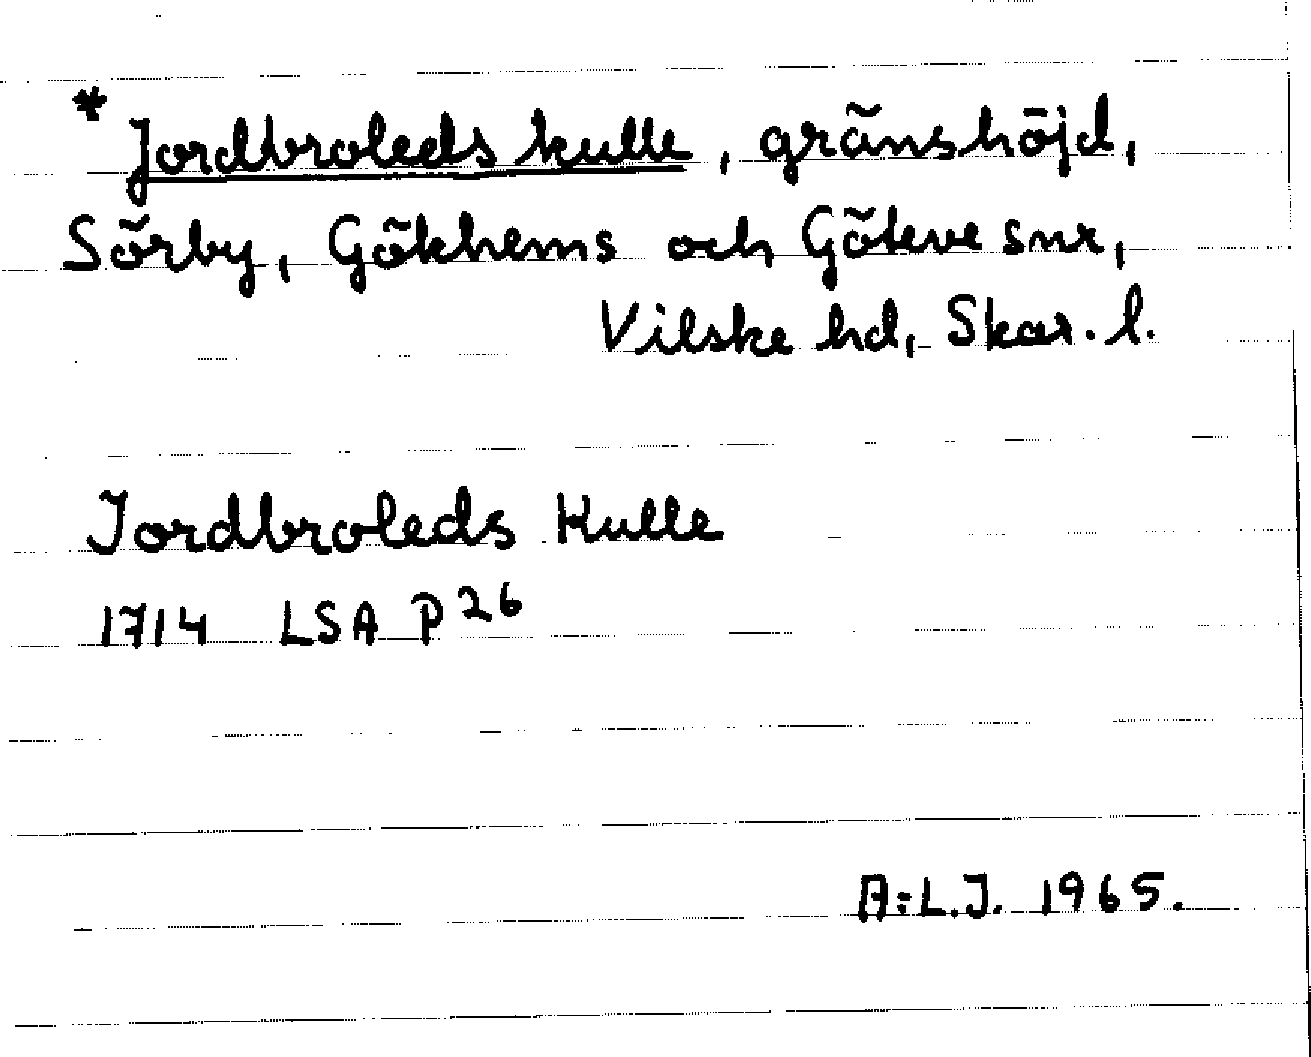 * Jordbroleds kulle, gränshöjd,
Sörby, Gökhems och Göteve snr,
Vilske hd, Skar. l.
Jordbroleds Kulle
1714 LSA P 26
A:L.J. 1965.